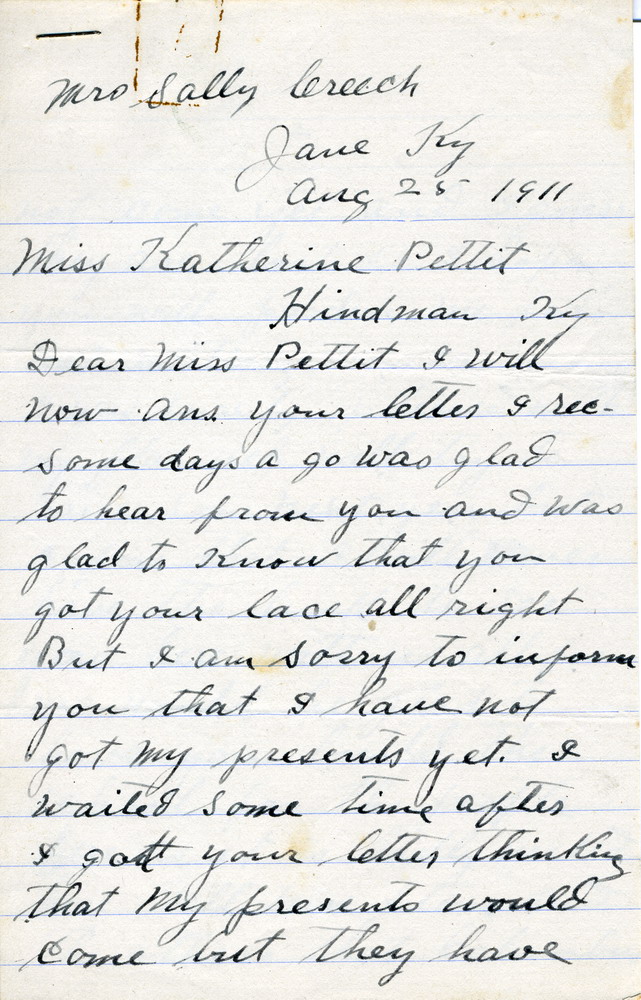 Mrs Sally Creech
Jane Ky
Aug 25 1911
Miss Katherine Pettit
Hindman Ky
Dear Miss Pettit I will
now ans your letter I rec-
some days a go was glad
to hear from you and was
glad to know that you
got your lace all right
But I am sorry to inform
you that I have not
got my presents yet. I
waited some time after
I gott your letter thinking
that my presents would
come but they have